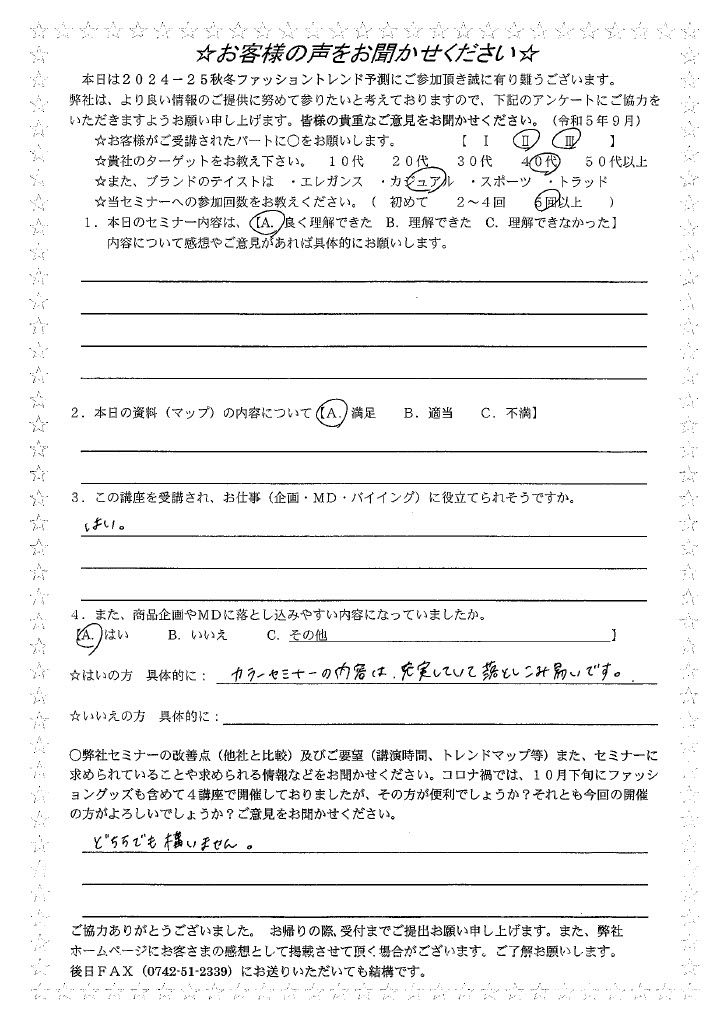 ☆お客様の声をお聞かせください☆
本日は2024－25秋冬ファッショントレンド予測にご参加頂き誠に有り難うございます。
弊社は、より良い情報のご提供に努めて参りたいと考えておりますので、下記のアンケートにご協力を
いただきますようお願い申し上げます。皆様の貴重なご意見をお聞かせください。（令和5年9月）
☆お客様がご受講されたパートに○をお願いします。 【 Ⅰ Ⅱ Ⅲ 】
☆貴社のターゲットをお教え下さい。 10代 20代 30代 40代 50代以上
☆また、ブランドのテイストは ・エレガンス ・カジュアル ・スポーツ ・トラッド
☆当セミナーへの参加回数をお教えください。（ 初めて 2～4回 5回以上 ）
1．本日のセミナー内容は、【A．良く理解できた B．理解できた C．理解できなかった】
内容について感想やご意見があれば具体的にお願いします。
2．本日の資料（マップ）の内容について【A．満足 B．適当 C．不満】
3．この講座を受講され、お仕事（企画・MD・バイイング）に役立てられそうですか。
はい。
4．また、商品企画やMDに落とし込みやすい内容になっていましたか。
【A．はい B．いいえ C．その他 】
☆はいの方 具体的に： カラーセミナーの内容は、充実していて落としこみ易いです。
☆いいえの方 具体的に：
○弊社セミナーの改善点（他社と比較）及びご要望（講演時間、トレンドマップ等）また、セミナーに
求められていることや求められる情報などをお聞かせください。コロナ禍では、10月下旬にファッシ
ョングッズも含めて4講座で開催しておりましたが、その方が便利でしょうか？それとも今回の開催
の方がよろしいでしょうか？ご意見をお聞かせください。
どちらでも構いません。
ご協力ありがとうございました。 お帰りの際、受付までご提出お願い申し上げます。また、弊社
ホームページにお客さまの感想として掲載させて頂く場合がございます。ご了解お願いします。
後日FAX（0742-51-2339）にお送りいただいても結構です。